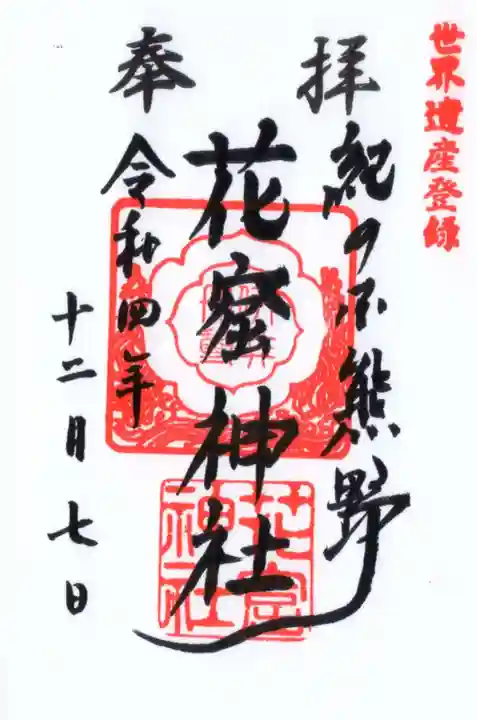 世界遺産登録
奉拝
紀の国熊野
花窟神社
令和四年
十二月七日
花窟
神社